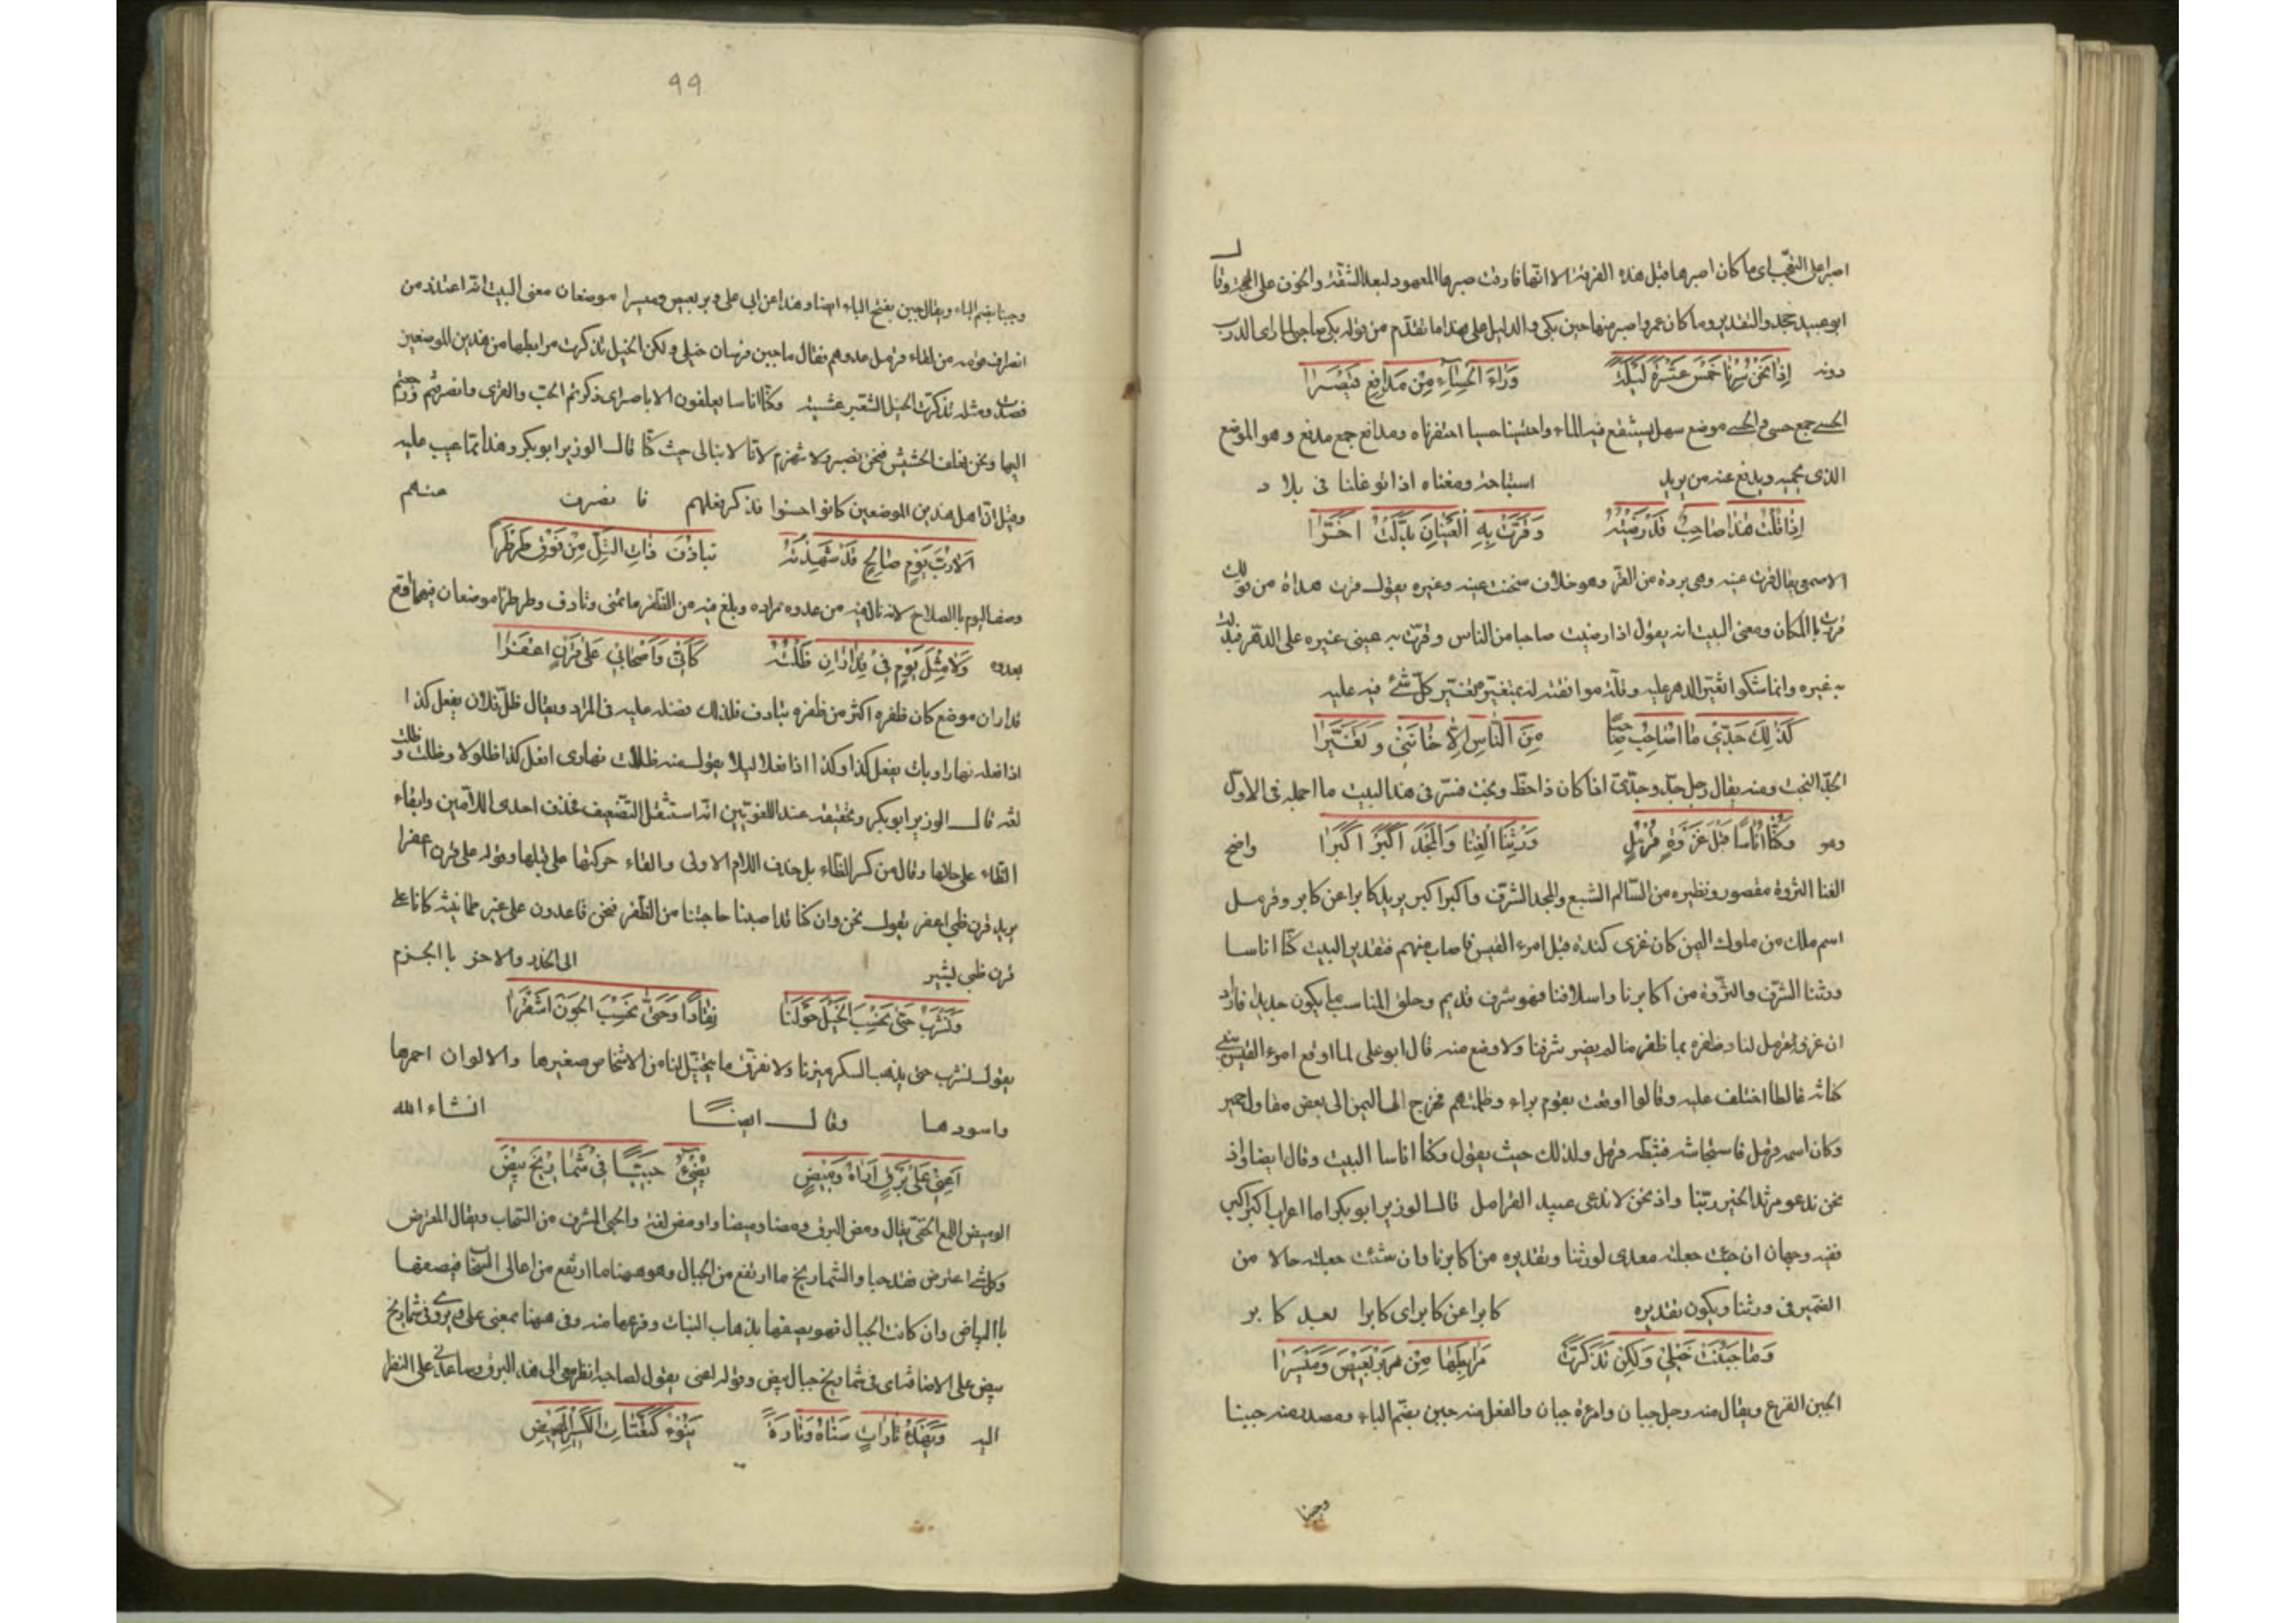 اصبر على التعجب اى ما كان اصبرها قبل هذه الفرقة الا انها فارقت صبرها المعهود لبعد الشقة والخوف على المهجة وقال
ابو عبيد حجد والتقدير وما كان عمرو اصبر منها حين بكى والدليل على هذا ما تقدم من قوله بكى صاحبى لما راى الدرب
دونه اِذَا نَحْنُ سِرْنَا خَمْسَ عَشْرَةَ لَيْلَةً وَرَاءَ الْحِسَاءِ مِنْ مَدَافِعِ قَيْصَرَا
الحسى جمع حسى والحسى موضع سهل يستنقع فيه الماء واحتسينا حسيا احتفرناه ومدافع جمع مدفع وهو الموضع
الذى يحميه ويدفع عنه من يريد استباحته ومعناه اذا توغلنا فى بلاد
اِذَا قُلْتُ هٰذَا صَاحِبٌ قَدْ رَضِيْتُهُ وَقَرَّتْ بِهِ الْعَيْنَانِ بُدِّلْتُ اٰخَرَا
الاصمعى يقال قرت عينه وهى بردة من القر وهو خلاف سخنت عينه وغيره يقول قرت هدأة من قولك
قررت بالمكان ومعنى البيت انه يقول اذا رضيت صاحبا من الناس وقرت به عينى غيره على الدهر فبدلت
به غيره وانما شكوا تغير الدهر عليه وقلة موافقته له بتغير كل شئ فيه عليه
كَذٰلِكَ جَدِّيْ مَا اُصَاحِبُ صَاحِبًا مِنَ النَّاسِ اِلَّا خَانَنِيْ وَتَغَيَّرَا
الجد البخت ومنه يقال رجل جد وجدى اذا كان ذا حظ وبخت فسر فى هذا البيت ما اجمله فى الاول
وهو وَكُنَّا اُنَاسًا قَبْلَ غَزْوَةِ قُرْمُلٍ وَرِثْنَا الْغِنَا وَالْمَجْدَ اَكْبَرَ اَكْبَرَا واضح
الغنا الثروة مقصور ونظيره من السالم الشبع والمجد الشرف واكبر اكبر يريد كابرا عن كابر وقرمل
اسم ملك من ملوك اليمن كان غزى كندة قبل امرء القيس فاصاب منهم فتقدير البيت كنا اناسا
ورثنا الشرف والثروة من اكابرنا واسلافنا فهو شرف قديم وخلق المناسب ما يكون جديدا فاراد
ان غزو قرمل لنا وظفره بما ظفر منا لم يضر شرفنا ولا وضع منه قال ابو على لما اوقع امرء القيس ببنى
كنانة غالطا اختلف عليه وقالوا اوقعت بقوم براء وظلمتهم فخرج الى اليمن الى بعض مقاول حمير
وكان اسمه قرمل فاستجاشه فثبطه قرمل ولذلك حيث يقول وكنا اناسا البيت وقال ايضا واذ
نحن ندعو مرثد الخير ربنا واذ نحن لا ندعى عبيد القرامل قال الوزير ابو بكر اما اعراب اكبر اكبر
ففيه وجهان ان جئت جعلته معدى لورثنا وتقديره من اكابرنا وان شئت جعلته حالا من
الضمير فى ورثنا ويكون تقديره كابرا عن كابر اى كابرا بعد كابر
وَمَا جَبُنَتْ خَيْلِيْ وَلٰكِنْ تَذَكَّرَتْ مَرَابِطَهَا مِنْ بَرْبَعِيْصَ وَمَيْسَرَا
الجبن الفزع ويقال منه رجل جبان وامرءة جبان والفعل منه جبن بضم الباء ومصدره منه جبنا
وجبنا
99
وجبنا بضم الباء ويقال جبن بفتح الباء ايضا وهذا عن ابى على وبربعيص وميسرا موضعان معنى البيت انه اعتذر من
انصراف قومه من لقاء قرمل عدوهم فقال ما جبن فرسان خيلى ولكن الخيل تذكرت مرابطها من هذين الموضعين
فصدت ومثله تذكرت الخيل الشعير عشية وكنا اناسا يعلفون الاياصرا اى ذكرتم الحب والقرى وانصرفتم ورجعتم
اليها ونحن نعلف الحشيش فنحن نصبر ولا نهزم لانا لا نبالى حيث كنا قال الوزير ابو بكر وهذا مما عيب عليه
وقيل ان اهل هذين الموضعين كانوا احسنوا فذكر فعلهم فانصرف عنهم
اَلَا رُبَّ يَوْمٍ صَالِحٍ قَدْ شَهِدْتُهُ بِتَاذِفَ ذَاتِ التَّلِّ مِنْ فَوْقِ طَرْطَرَا
وصف اليوم بالصلاح لانه نال فيه من عدوه مراده وبلغ فيه من الظفر ما تمنى وتاذف وطرطرا موضعان فيهما وقع
بعدوه وَلَا مِثْلَ يَوْمٍ فِيْ قُدَارَانِ ظَلْتُهُ كَاَنِّيْ وَاَصْحَابِيْ عَلٰى قَرْنِ اَعْفَرَا
قداران موضع كان ظفره اكثر من ظفره بتاذف فلذلك فضله عليه فى المزد ويقال ظل فلان يفعل كذا
اذا فعله نهارا وبات يفعل كذا وكذا اذا فعلا ليلا يقول منه ظللت نهارى افعل كذا ظلولا وظلت وظلت
لغة قال الوزير ابو بكر وتحقيقه عند اللغويين انه استثقل التضعيف فحذف احدى اللامين وابقاء
الظاء على حالها وقال من كسر الظاء بل حذف اللام الاولى والقاء حركتها على قبلها وقوله على قرن اعفرا
يريد قرن ظبى اعفر يقول نحن وان كنا قد اصبنا حاجتنا من الظفر فنحن قاعدون على غير طمانينة كانا على
قرن ظبى يشير الى الحذر والاخذ بالحزم
وَنَشْرَبُ حَتّٰى نَحْسِبَ الْخَيْلَ حَوْلَنَا نِقَادًا وَحَتّٰى نَحْسِبَ الْجَوْنَ اَشْقَرَا
يقول نشرب حتى يذهب السكر ميزنا ولا نفرق ما يتخيل لنا من الاشخاص صغيرها والالوان احمرها
واسودها وقال ايضًا انشاء الله
اَعِنِّيْ عَلٰى بَرْقٍ اَرَاهُ وَمِيْضٍ يُضِيْءُ حَبِيًّا فِيْ شَمَارِيْخَ بِيْضٍ
الوميض اللمع الخفى يقال ومض البرق ومضا وميضا واومض لغة والحبى المشرف من السحاب ويقال المعترض
وكل شئ اعترض فقد حبا والشماريخ ما ارتفع من الجبال وهو ههنا ما ارتفع من اعالى السحاب فيصفها
بالبياض وان كانت الجبال فهو يصفها بذهاب النبات وفرعها منه وفى ههنا بمعنى على ويروى فى شماريخ
بيض على الاضافة اى فى شماريخ جبال بيض وقوله اعنى يقول لصاحبه انظر معى الى هذا البرق وساعدنى على النظر
اليه وَيَهْدَأُ تَارَاتٍ سَنَاهُ وَتَارَةً يَنُوْءُ كَتَعْتَابِ الْكَسِيْرِ الْمَهِيْضِ